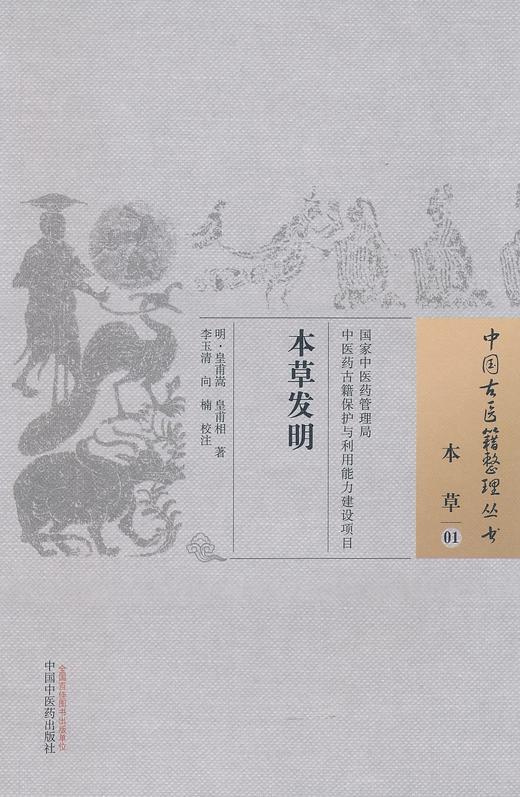 中国古医籍整理丛书
本草
01
国家中医药管理局
中医药古籍保护与利用能力建设项目
本草发明
明·皇甫嵩 皇甫相 著
李玉清 向楠 校注
全国百佳图书出版单位
中国中医药出版社